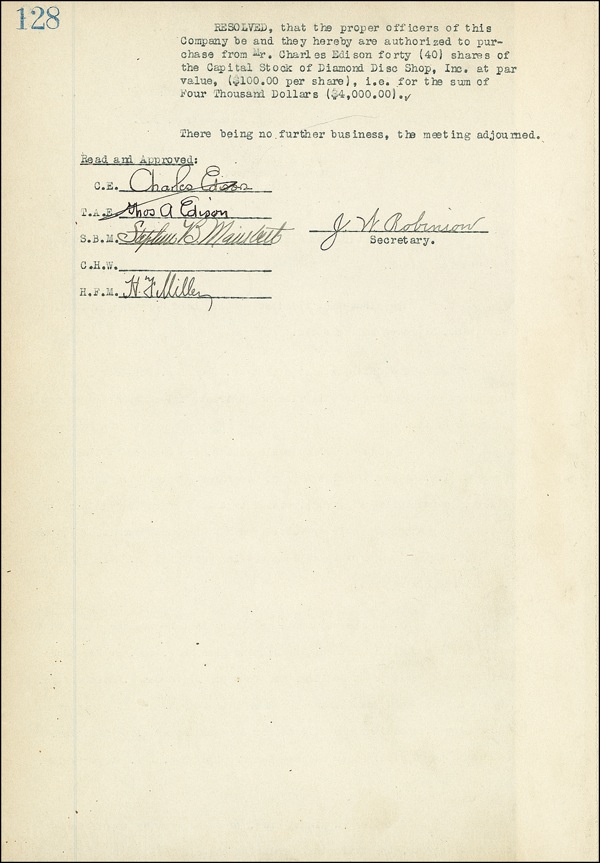 128
RESOLVED, that the proper officers of this
Company be and they hereby are authorized to pur-
chase from Mr. Charles Edison forty (40) shares of
the Capital Stock of Diamond Disc Shop, Inc. at par
value, ($100.00 per share), i.e. for the sum of
Four Thousand Dollars ($4,000.00).
There being no further business, the meeting adjourned.
Read and Approved:
C.E. Charles Edison
T.A.E. Thos A Edison
S.B.M. Stephen B Mambert
J W Robinson
Secretary.
C.H.W.
H.F.M. H.F. Miller